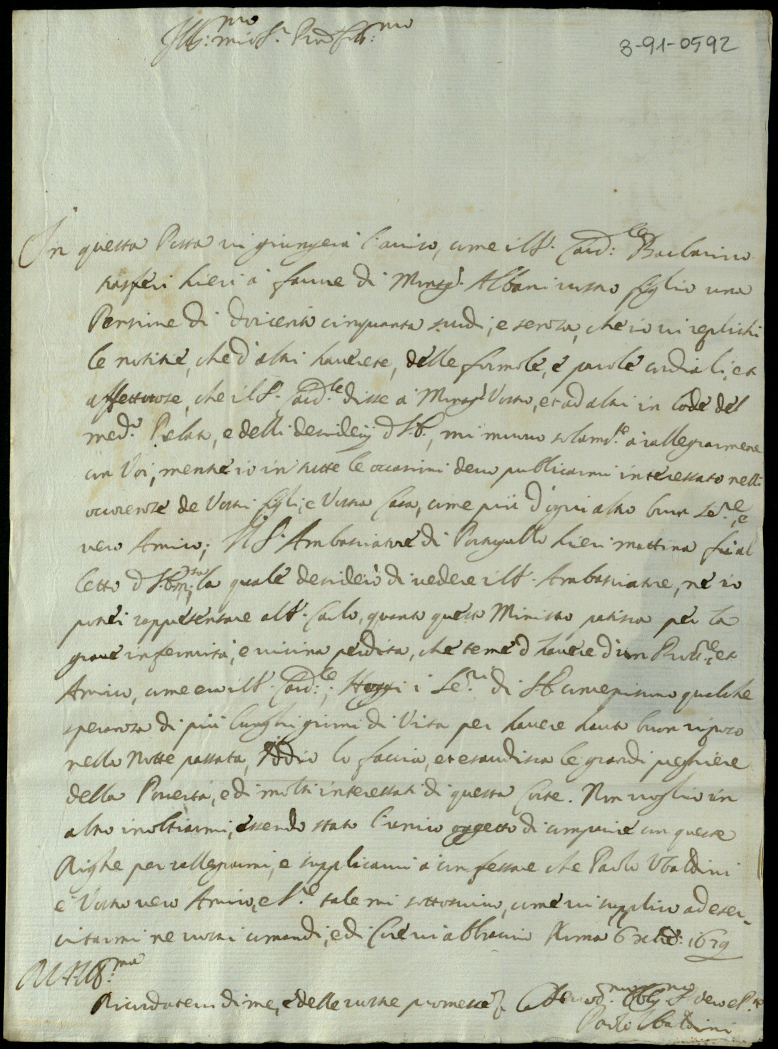 Ill:mo mio Sr. Pron
3-91-0592
In questa Posta vi giungerà l'aviso, come il S. Card:le Barbarino
trasferì hieri à favore di Monsr. Albani vostro figlio una
Pensione di ducento cinquanta scudi, e senza, che io vi replichi
le notitie, che d'altri haverete, delle formole, e parole cordiali, et
affettuose, che il S. Card:le disse à Monsr. Vostro, et ad altri in lode del
med.o Prelato, e delli desiderij di S.E., mi muovo solam.te à rallegrarmene
con Voi, mentre io in tutte le occasioni devo publicarmi interessato nelli
occorenze de Vostri figli, e Vostra Casa, come più d'ogni altro buon Se.re, e
vero Amico; Il S. Ambasciatore di Portugallo hieri mattina fù al
letto di S.E. la quale desiderò di vedere il S. Ambasciatore, né io
potrei rappresentare al S. Carlo, quanto questo Ministro patisca per la
grave infermità, e vicina perdita, che teme d'havere d'un Prot.re, et
Amico, come era il S. Card:le; Hoggi i Se.ri di S.E. concepiscono qualche
speranza di più lunghi giorni di Vita per havere hauto buon riposo
nella Notte passata, Iddio lo faccia, et esaudisca le grandi preghiere
della Povertà, e di molti interessati di questa Corte. Non voglio in
altro inoltrarmi, essendo stato l'unico oggetto di comparire con queste
Righe per rallegrarmi, e supplicarvi à confessare che Paolo Ubaldini
è Vostro vero Amico, e Se.re tale mi sottoscrivo, come vi supplico ad eser-
citarmi ne vostri comandi, e di Cuore vi abbraccio Roma 6 Xbre: 1679
Ricordatevi di me, e delle vostre promesse Devot.mo Oblig.mo Se vero
Paolo Ubaldini